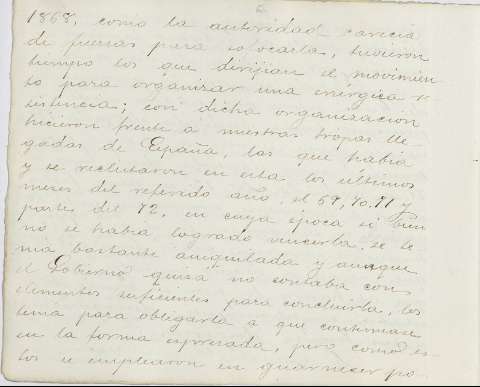 2
1868, como la autoridad carecia
de fuerzas para sofocarla, tuvieron
tiempo los que dirijian el movimien
to para organizar una enérgica re
sistencia; con dicha organizacion
hicieron frente a nuestras tropas lle
gadas de España, las que habia
y se reclutaron en esta los últimos
meses del referido año, el 69, 70, 71 y
parte del 72, en cuya época si bien
no se habia logrado vencerla, se te
nia bastante aniquilada y aunque
el Gobierno quizá no contaba con
elementos suficientes para concluirla, los
tenia para obligarla a que continuase
en la forma espresada, pero como es
tos se emplearon en guarnecer po